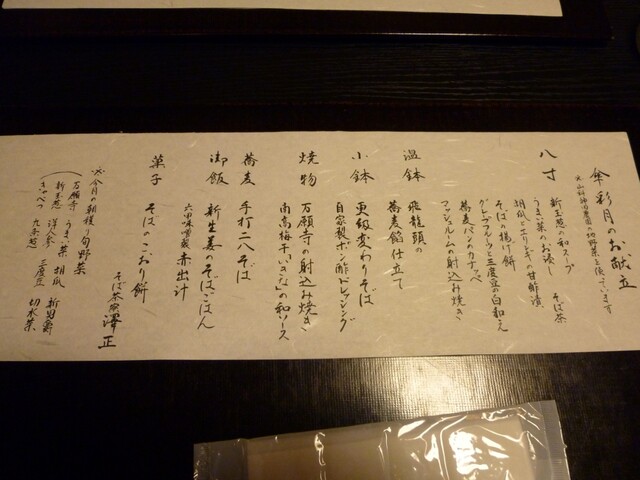 傘彩月のお献立
八寸
新玉葱の和スープ そば茶
うまい菜のお浸し
胡瓜とエリンギの甘酢漬
そばの揚げ餅
グレープフルーツと三度豆の白和え
蕎麦パンのカナッペ
マッシュルームの射込み焼き
温鉢 飛龍頭の
蕎麦餡仕立て
小鉢 更級変わりそば
自家製ポン酢ドレッシング
焼物 万願寺の射込み焼き
南高梅干“いさな”の和ソース
蕎麦 手打二八そば
御飯 新生姜のそばごはん
六甲味噌蔵 赤出汁
菓子 そばのこおり餅
そば茶寮 澤正
※今月の朝穫り旬野菜
万願寺 うまい菜 胡瓜 新男爵
新玉葱 洋人参 三度豆 切水菜
きゃべつ 九条葱